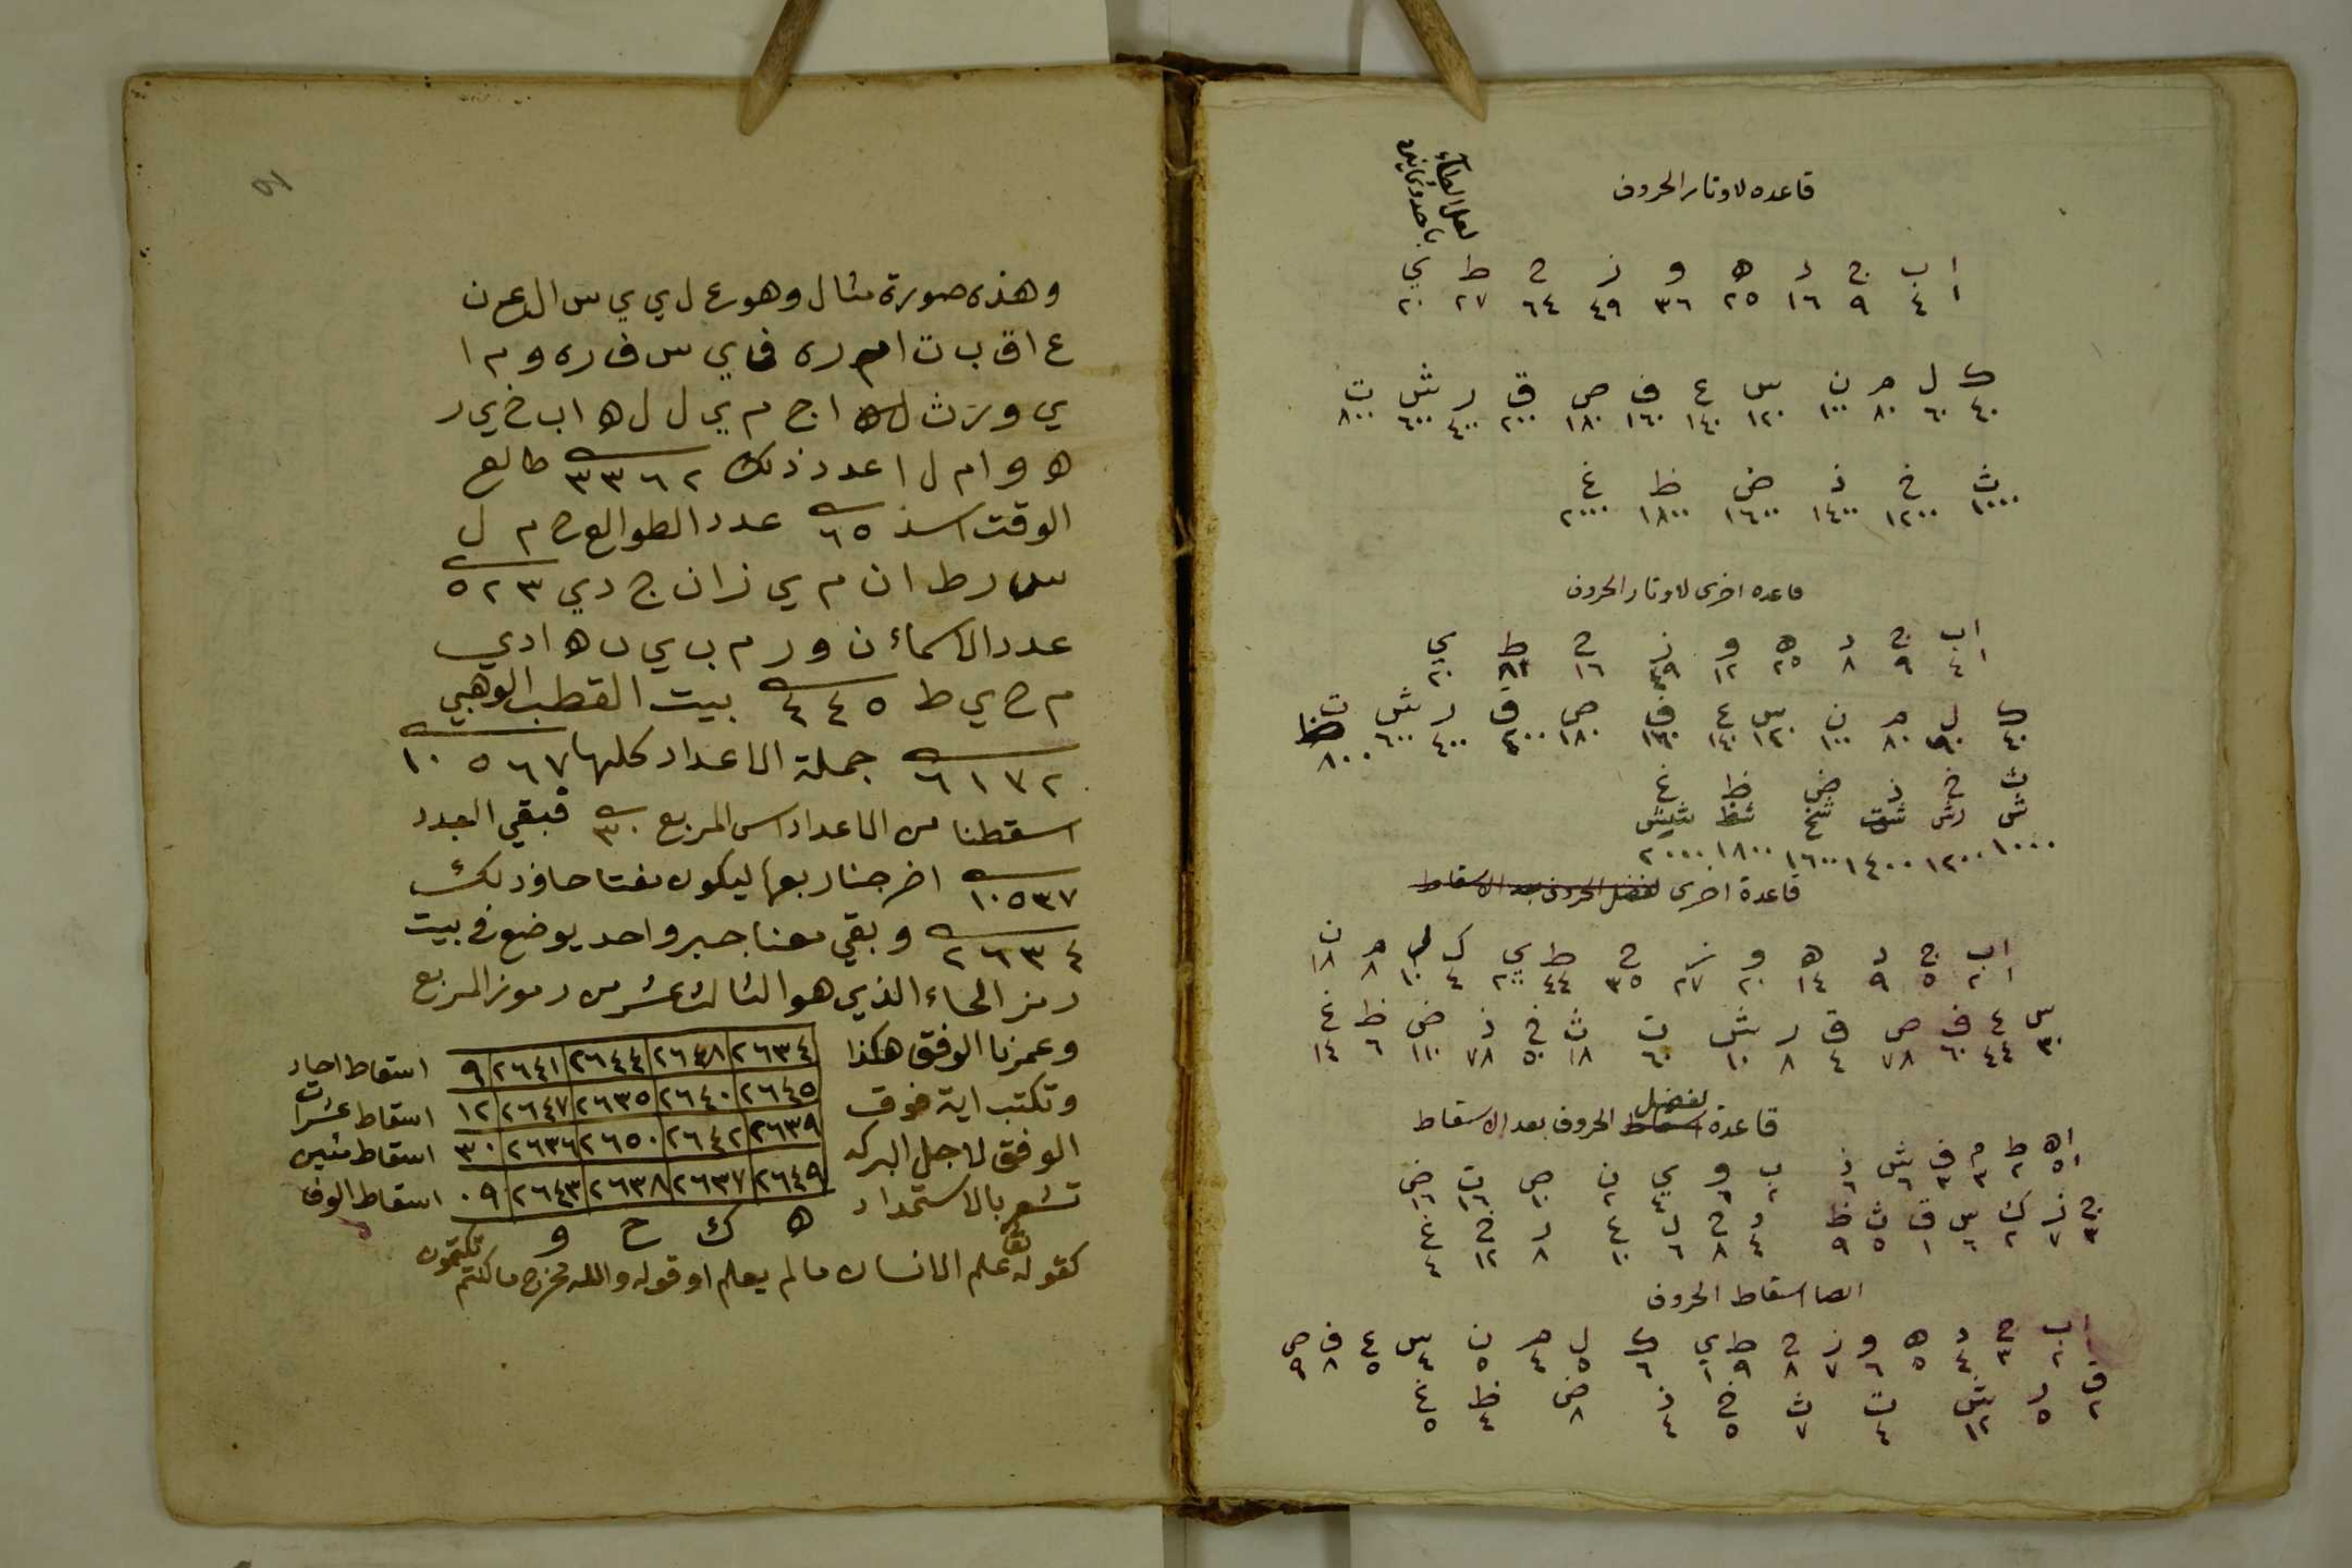 قاعده لاوتار الحروف
لعل الطاء
باحد وثمانين
ا ب ج د ه و ز ح ط ي
١ ٤ ٩ ١٦ ٢٥ ٣٦ ٤٩ ٦٤ ٢٧ ٢٠
ك ل م ن س ع ف ص ق ر ش ت
٤٠ ٦٠ ٨٠ ١٠٠ ١٢٠ ١٤٠ ١٦٠ ١٨٠ ٢٠٠ ٤٠٠ ٦٠٠ ٨٠٠
ث خ ذ ض ظ غ
١٠٠٠ ١٢٠٠ ١٤٠٠ ١٦٠٠ ١٨٠٠ ٢٠٠٠
قاعده اخرى لاوتار الحروف
ا ب ج د ه و ز ح ط ي
١ ٤ ٩ ٨ ٢٥ ١٢ ٤٩ ١٦ ٨١ ٢٠
ك ل م ن س ع ف ص ق ر ش ت
٤٠ ٩٠ ٨٠ ١٠٠ ١٢٠ ١٤٠ ١٦٠ ١٨٠ ٤٠٠ ٦٠٠ ٨٠٠
ث خ ذ ض ظ غ
١٠٠٠ ١٢٠٠ ١٤٠٠ ١٦٠٠ ١٨٠٠ ٢٠٠٠
قاعدة اخرى لفضل الحروف بعد الاسقاط
ا ب ج د ه و ز ح ط ي ك ل م ن
١ ٢ ٥ ٩ ١٤ ٢٠ ٢٧ ٣٥ ٤٤ ٢٠٠ ٤ ١٠ ٨ ١٨
س ع ف ص ق ر ش ت ث خ ذ ض ظ غ
٣٠ ٤٤ ٦٠ ٧٨ ٤ ٨ ١٠ ٦٠ ١٨ ٥٠ ٧٨ ١١٠ ٦ ١٤
قاعدة لفضل الحروف بعد الاسقاط
ا ه ط م ف ش ذ ب و ي ن ص ت ض
ج ز ك س ق ث ظ د ح ل ع ر خ غ
٣ ٧ ٢ ٦ ١ ٥ ٩ ٤ ٨ ٦ ١٠ ٨ ١٢ ٤
ايضا اسقاط الحروف
ا ب ج د ه و ز ح ط ي ك ل م ن س ع ف ص
٢ ٣ ٤ ٥ ٦ ٧ ٨ ٩ ١ ٦ ٥ ٤ ٥ ٤ ٥ ٨ ٩
ق ر ش ت ث خ ذ ض ظ غ
٢ ٥ ١٢ ٤ ٧ ٥ ٤ ٨ ٤ ٥
وهذه صورة مثال وهو ع ل ي ي س ال ع ن
ع ا ق ب ت ا م ر ه ف ا ي س ف ر ه و م ا
ي و ر ث ل ه ا ج م ي ل ل ه ا ب خ ي ر
ه و ا م ل ا عدد ذلك ٣٣٦٢ طالع
الوقت اسد ٦٥ عدد الطوالع ح م ل
س ر ط ا ن م ي ز ا ن ج د ي ٥٢٣
عدد الاسماء ن و ر م ب ي ن ه ا د ي
م ح ي ط ٤٤٥ بيت القطب الوهبي
٦١٧٢ جملة الاعداد كلها ١٠٥٦٧
اسقطنا من الاعداد اس المربع ٣٠ فبقي العدد
١٠٥٣٧ اخرجنا ربعها ليكون مفتاحا وذلك
٢٦٣٤ وبقي معنا جبر واحد يوضع في بيت
رمز الحاء الذي هو الثالث عشر من رموز المربع
وعمرنا الوفق هكذا
٢٦٣٤ ٢٦٤٨ ٢٦٤٤ ٢٦٤١ ٩ اسقاط احاد
وتكتب اية فوق
٢٦٤٥ ٢٦٤٠ ٢٦٣٥ ٢٦٤٧ ١٢ اسقاط عشرات
الوفق لاجل البركه
٢٦٣٩ ٢٦٤٢ ٢٦٥٠ ٢٦٣٦ ٣٠ اسقاط مئين
تشعر بالاستمداد
٢٦٤٩ ٢٦٣٧ ٢٦٣٨ ٢٦٤٣ ٠٩ اسقاط الوف
ه ك ح و
كقوله تعا علم الانسان ما لم يعلم او قوله والله مخرج ما كنتم تكتمون